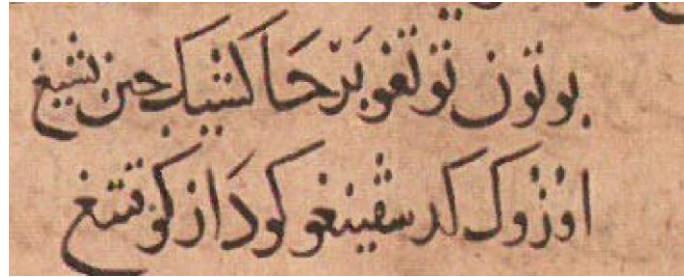 بوتون توتغو بَرجَا كشيك جين تشيغ
اوزوك كد سقينغو كودَازكو قتيغ